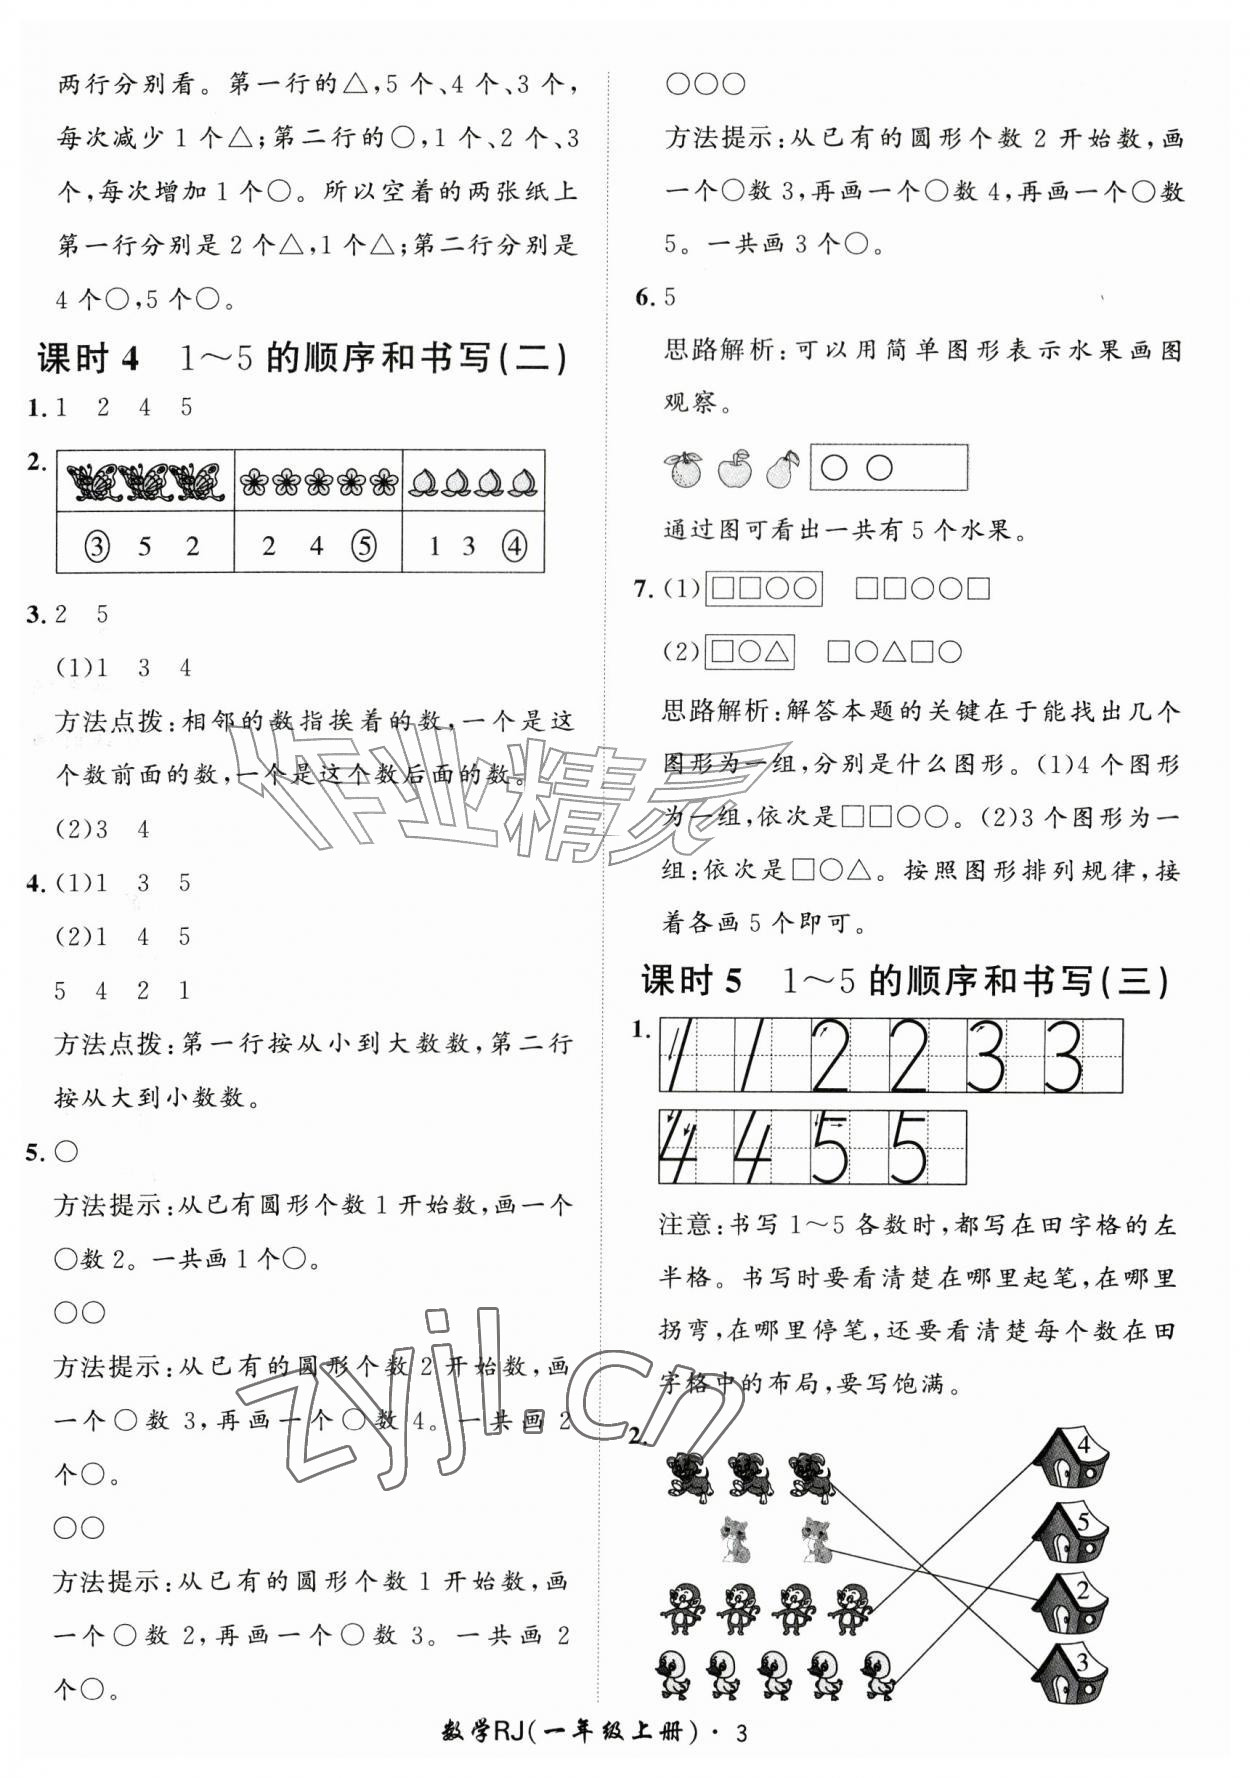 两行分别看。第一行的△,5个、4个、3个,
每次减少1个△;第二行的○,1个、2个、3
个,每次增加1个○。所以空着的两张纸上
第一行分别是2个△,1个△;第二行分别是
4个○,5个○。
课时4 1～5的顺序和书写(二)
1. 1 2 4 5
2.
③ 5 2 2 4 ⑤ 1 3 ④
3. 2 5
(1)1 3 4
方法点拨:相邻的数指挨着的数,一个是这
个数前面的数,一个是这个数后面的数。
(2)3 4
4. (1)1 3 5
(2)1 4 5
5 4 2 1
方法点拨:第一行按从小到大数数,第二行
按从大到小数数。
5. ○
方法提示:从已有圆形个数1开始数,画一个
○数2。一共画1个○。
○○
方法提示:从已有的圆形个数2开始数,画
一个○数3,再画一个○数4。一共画2
个○。
○○
方法提示:从已有的圆形个数1开始数,画
一个○数2,再画一个○数3。一共画2
个○。
○○○
方法提示:从已有的圆形个数2开始数,画
一个○数3,再画一个○数4,再画一个○数
5。一共画3个○。
6. 5
思路解析:可以用简单图形表示水果画图
观察。
○○
通过图可看出一共有5个水果。
7. (1)□□○○ □□○○□
(2)□○△ □○△□○
思路解析:解答本题的关键在于能找出几个
图形为一组,分别是什么图形。(1)4个图形
为一组,依次是□□○○。(2)3个图形为一
组:依次是□○△。按照图形排列规律,接
着各画5个即可。
课时5 1～5的顺序和书写(三)
1. 1 1 2 2 3 3
4 4 5 5
注意:书写1～5各数时,都写在田字格的左
半格。书写时要看清楚在哪里起笔,在哪里
拐弯,在哪里停笔,还要看清楚每个数在田
字格中的布局,要写饱满。
2.
4
5
2
3
数学RJ(一年级上册)·3
作业精灵
zyjl.cn